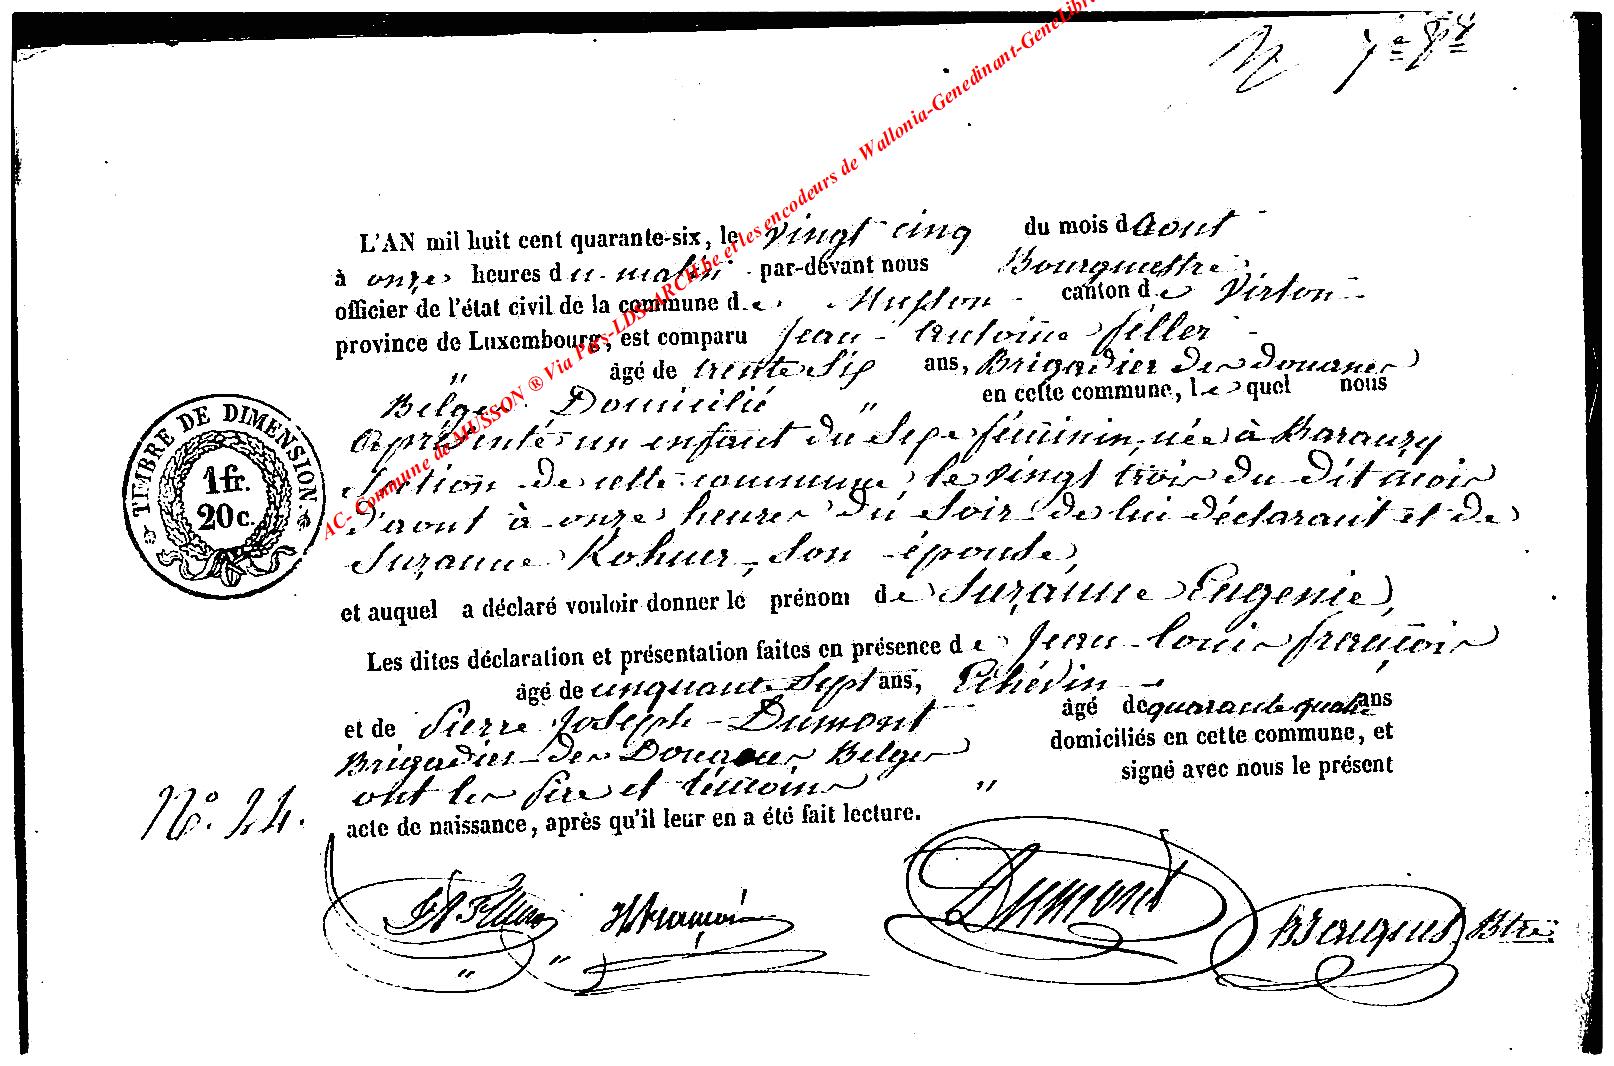 N 7e
AC- Commune de MUSSON ® Via Pers-LDS-ARCH.be et les encodeurs de Wallonia-Genedinant-GeneLibr
L'AN mil huit cent quarante-six, le vingt cinq du mois d'aout
à onze heures du matin par-devant nous Bourgmestre
officier de l'état civil de la commune de Musson canton de Virton
province de Luxembourg, est comparu Jean Antoine filler
" âgé de trente six ans, Brigadier des douanes
Belges Domicilié " en cette commune, lequel nous
a présenté un enfant du sexe féminin, née à Baranzy
section de cette commune le vingt trois du dit mois
d'aout à onze heures du soir de lui déclarant et de
Suzanne Kohner, son épouse,
et auquel a déclaré vouloir donner le prénom de Suzanne Eugenie,
Les dites déclaration et présentation faites en présence de Jean Louis françois
âgé de cinquante sept ans, Echévin
et de Pierre Joseph Dumont âgé de quarante quatre ans
Brigadier des Douanes Belges domiciliés en cette commune, et
ont les père et témoins " signé avec nous le présent
acte de naissance, après qu'il leur en a été fait lecture.
TIMBRE DE DIMENSION.
1 fr.
20 c.
No. 24.
JA Filler françois Dumont Btre
" "